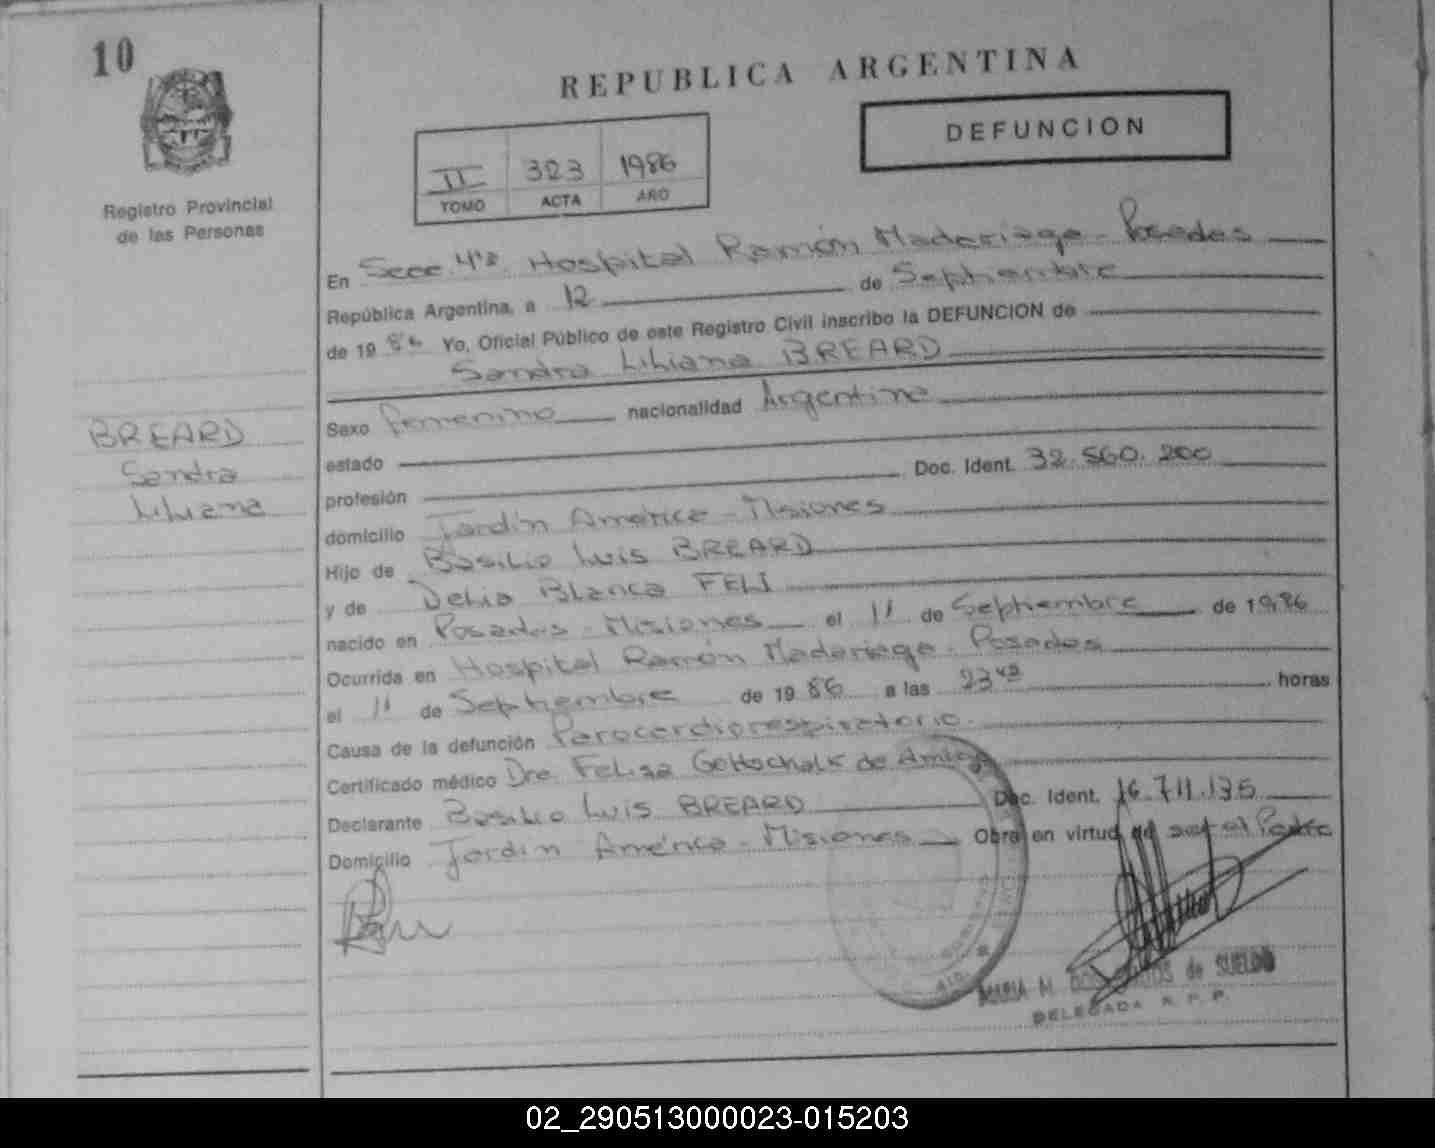 10
REPUBLICA ARGENTINA
DEFUNCION
II 323 1986
TOMO ACTA AÑO
Registro Provincial
de las Personas
En Secc. 4ta. Hospital Ramón Madariaga - Posadas
República Argentina, a 12 de Septiembre
de 1986 Yo, Oficial Público de este Registro Civil inscribo la DEFUNCION de
Sandra Liliana BREARD
BREARD
Sandra
Liliana
Sexo femenino nacionalidad Argentina
estado
profesión Doc. Ident. 32.560.200
domicilio Jardín América - Misiones
Hijo de Basilio Luis BREARD
y de Delia Blanca FELI
nacido en Posadas - Misiones el 11 de Septiembre de 1986
Ocurrida en Hospital Ramón Madariaga - Posadas
el 11 de Septiembre de 1986 a las 23 horas
Causa de la defunción Parocardiorespiratorio.
Certificado médico Dra. Felisa Gottschalk de
Declarante Basilio Luis BREARD Doc. Ident. 16.711.135
Domicilio Jardín América - Misiones Obra en virtud de ser el Padre
MARIA M. de SUELDO
DELEGADA R. P. P.
02_290513000023-015203